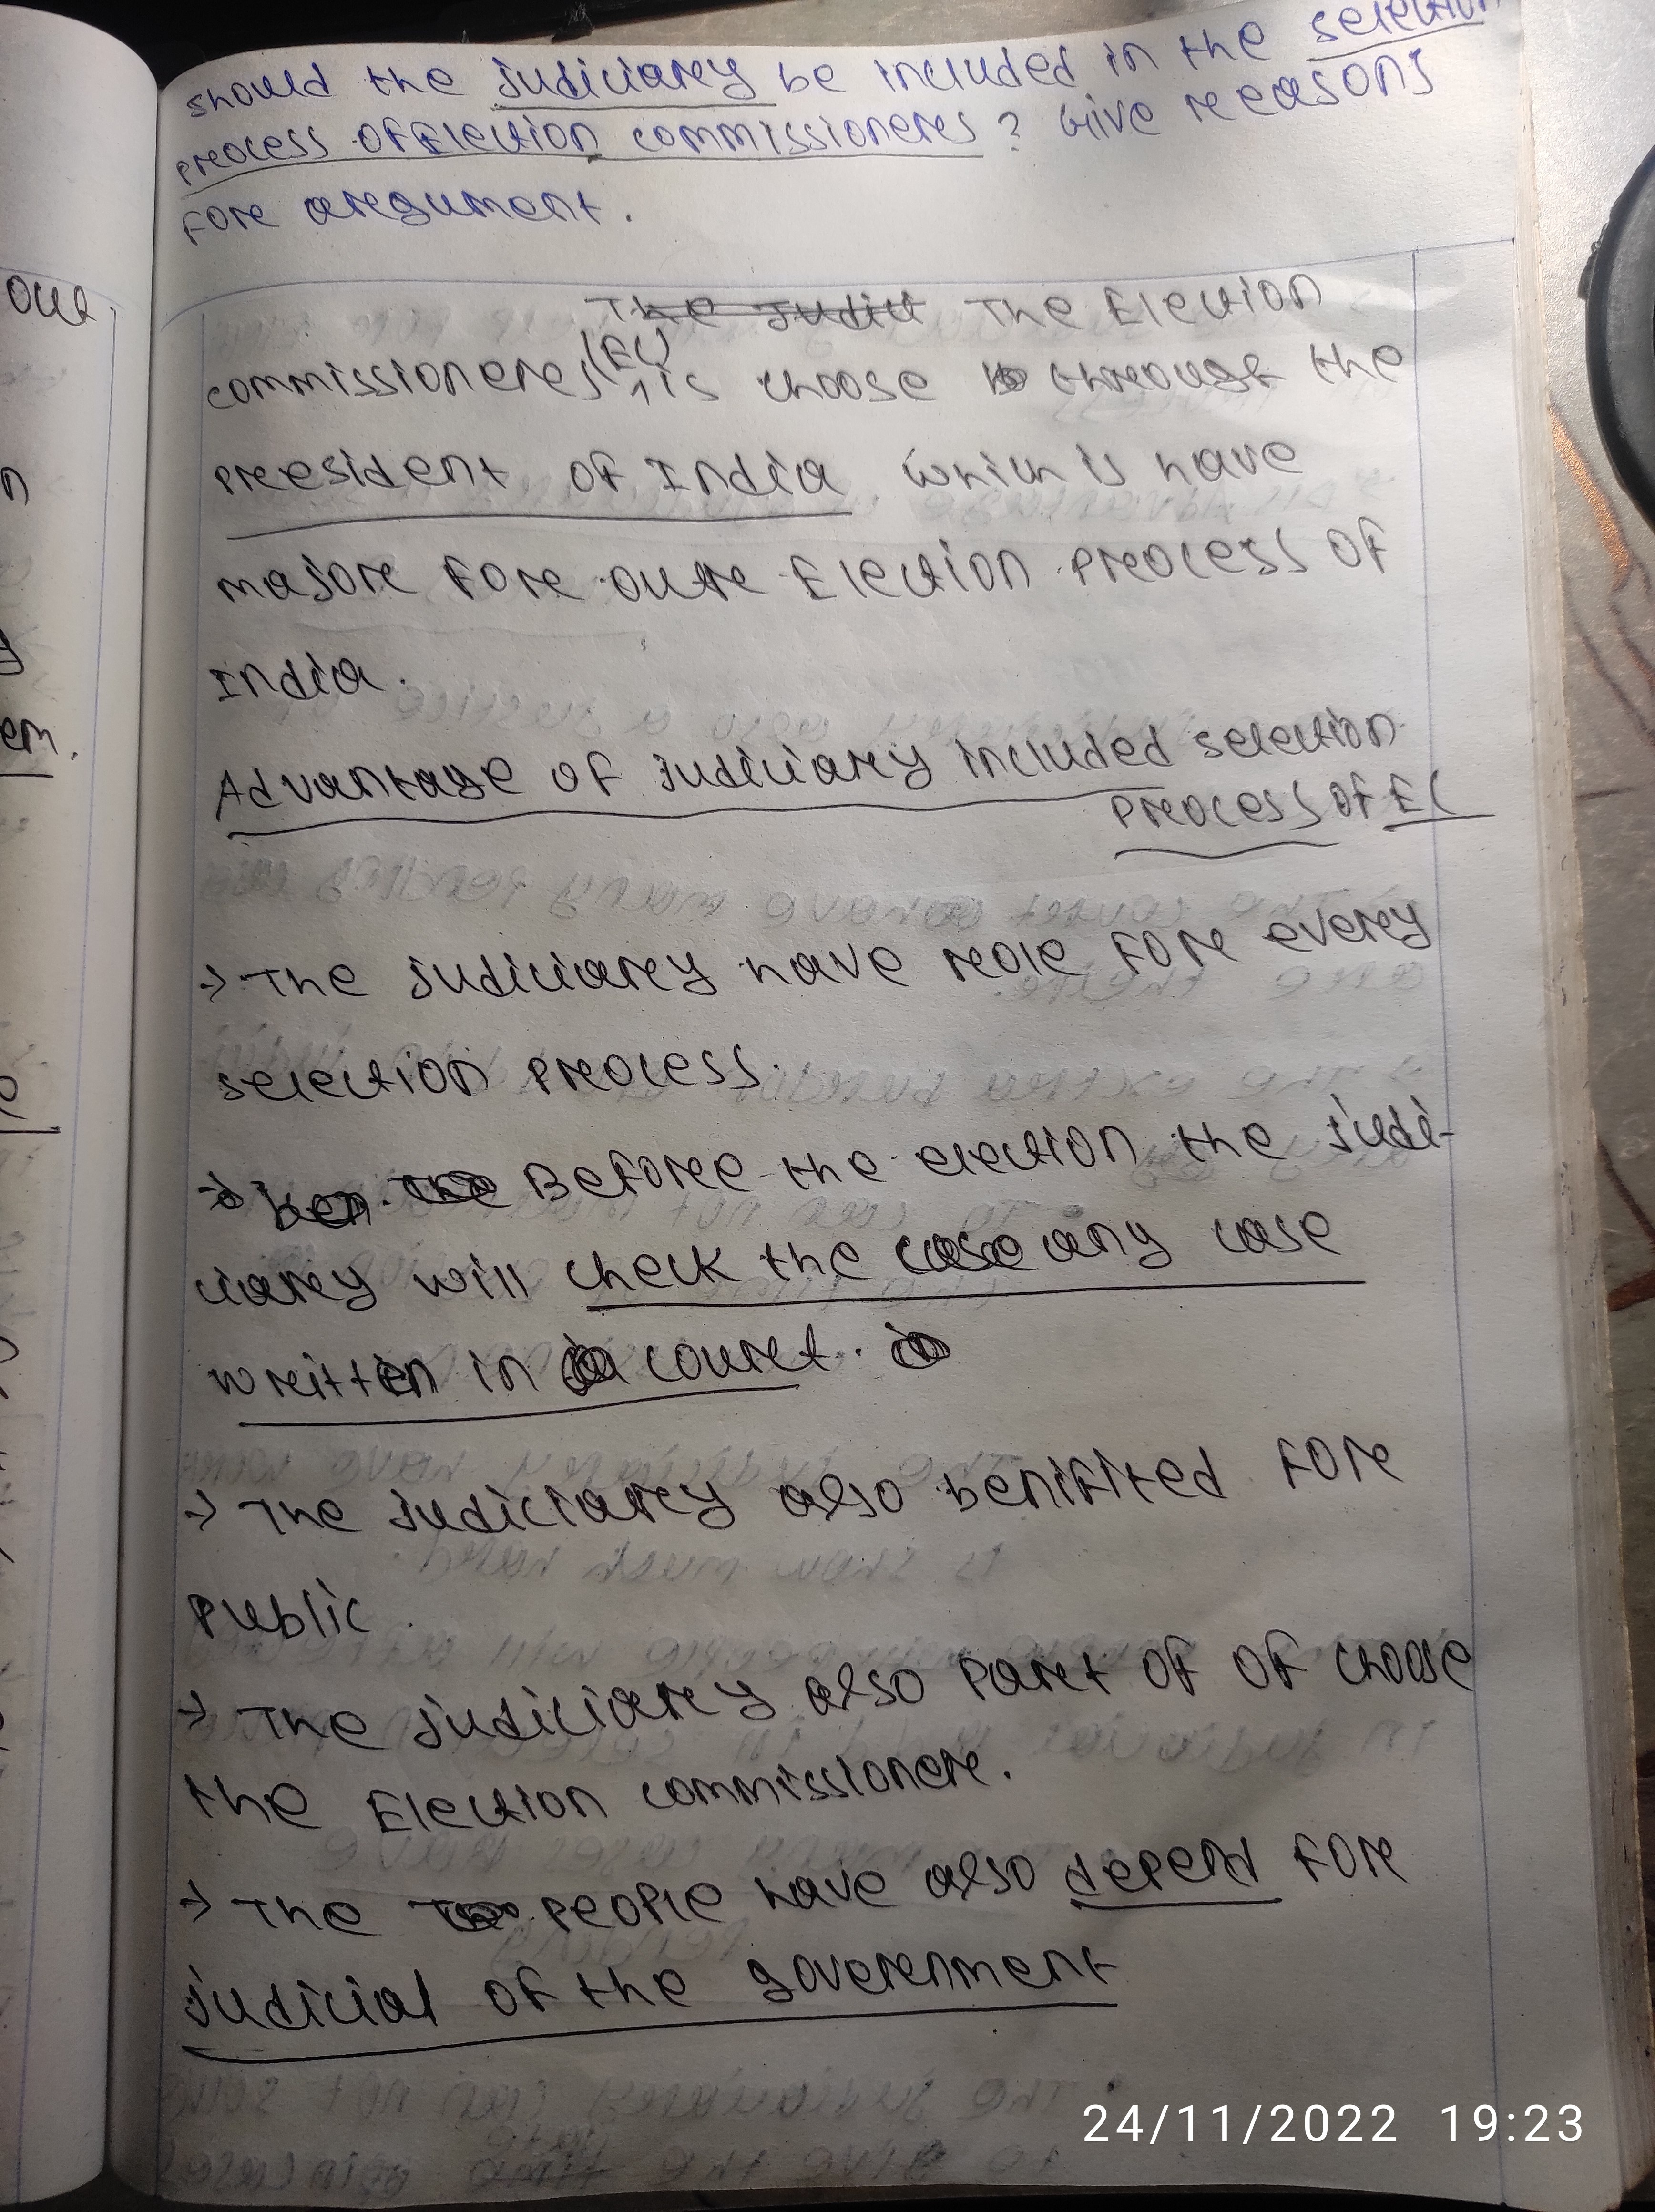 should the judiciary be included in the selection
process of Election commissioners? Give reeasons
fore aregument.
The Judici The Election
commissioneres (EC) is choose through the
president of India which is have
majore fore oure Election process of
India.
Advantage of judiciary included selection
process of EC
→ The judiciarey have role fore every
selection process.
→ Beforee the election the judi-
ciarey will check the case any case
written in court.
→ The judiciarey also benifited fore
public.
→ The judiciarey also part of of choose
the Election commissionere.
→ The people have also depend fore
judicial of the goverenment
our
n
y
em.
24/11/2022 19:23